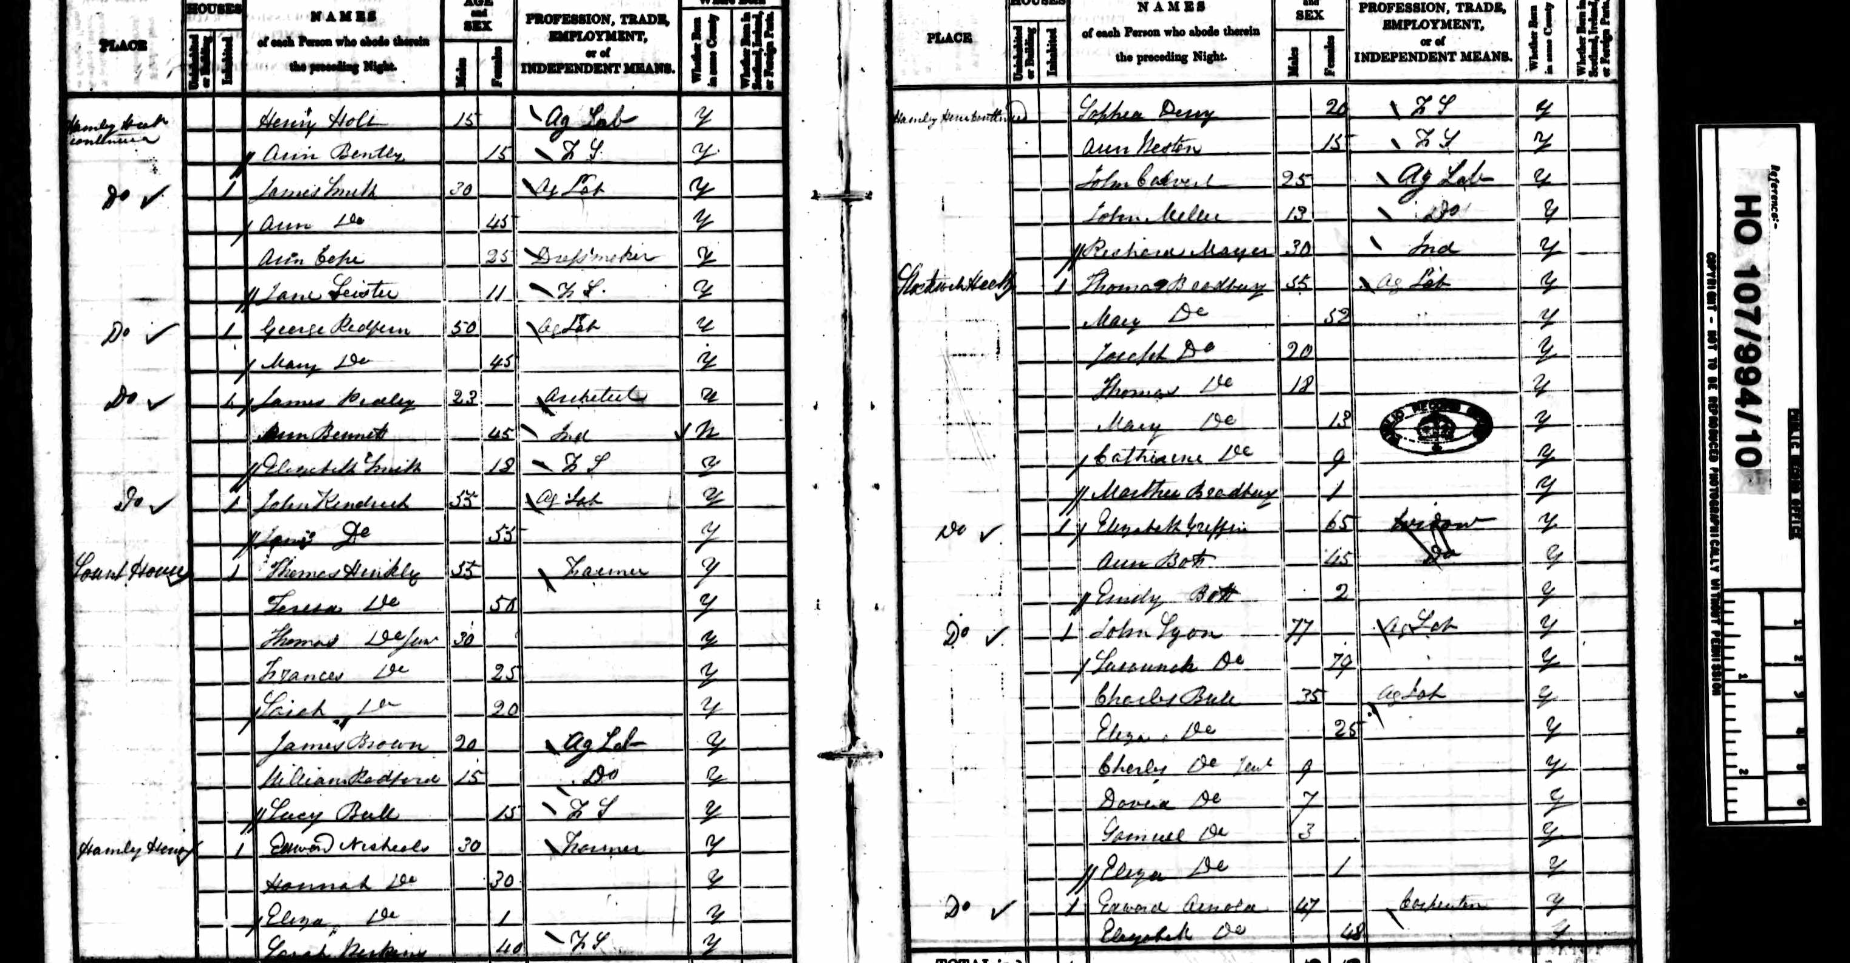 HOUSES
PLACE
Uninhabited or Building
Inhabited
NAMES
of each Person who abode therein
the preceding Night.
AGE
and
SEX
Males
Females
PROFESSION, TRADE,
EMPLOYMENT,
or of
INDEPENDENT MEANS.
Where Born
Whether Born in same County
Whether Born in Scotland, Ireland, or Foreign Parts.
continued Henry Holt 15 Ag Lab Y
Ann Bentley 15 F S Y
Do 1 James Smith 30 Ag Lab Y
Ann Do 45 Y
Ann Cope 25 Dressmaker Y
Jane 11 F S. Y
Do 1 George Redfern 50 Ag Lab Y
Mary Do 45 Y
Do 1 James 23 Architect Y
Ann Bennet 45 Ind N
Elizabeth Smith 18 F S Y
Do 1 John Kendrick 55 Ag Lab Y
Do 55 Y
House 1 Thomas Hinkley 55 Farmer Y
Teresa Do 50 Y
Thomas Do Jun 30 Y
Frances Do 25 Y
Sarah Do 20 Y
James Brown 20 Ag Lab Y
William Radford 15 Do Y
Lucy Bull 15 F S Y
Hamley 1 Edward Nicholls 30 Farmer Y
Hannah Do 30 Y
Eliza Do 1 Y
Sarah 40 F S Y
HOUSES
PLACE
Uninhabited or Building
Inhabited
NAMES
of each Person who abode therein
the preceding Night.
and
SEX
Males
Females
PROFESSION, TRADE,
EMPLOYMENT,
or of
INDEPENDENT MEANS.
Whether Born in same County
Whether Born in Scotland, Ireland, or Foreign Parts.
Hamley 20 F S Y
Ann 15 F S Y
John Calvert 25 Ag Lab Y
John 13 Do Y
Richard Mayer 30 Ind Y
1 Thomas Bradbury 55 Ag Lab Y
Mary Do 52 Y
Joseph Do 20 Y
Thomas Do 18 Y
Mary Do 13 Y
Catharine Do 9 Y
Martha Bradbury 1 Y
Do 1 Elizabeth Griffin 65 Widow Y
Ann Bott 45 Do Y
Emily Bott 2 Y
Do 1 John Lyon 77 Ag Lab Y
Do 79 Y
Charles Bull 35 Ag Lab Y
Eliza Do 25 Y
Charles Do 9 Y
David Do 7 Y
Samuel Do 3 Y
Eliza Do 1 Y
Do 1 Edward Arnold 47 Carpenter Y
Elizabeth Do 48
TOTAL in
PUBLIC RECORD OFFICE
Reference:-
HO 107/994/10
COPYRIGHT - NOT TO BE REPRODUCED PHOTOGRAPHICALLY WITHOUT PERMISSION